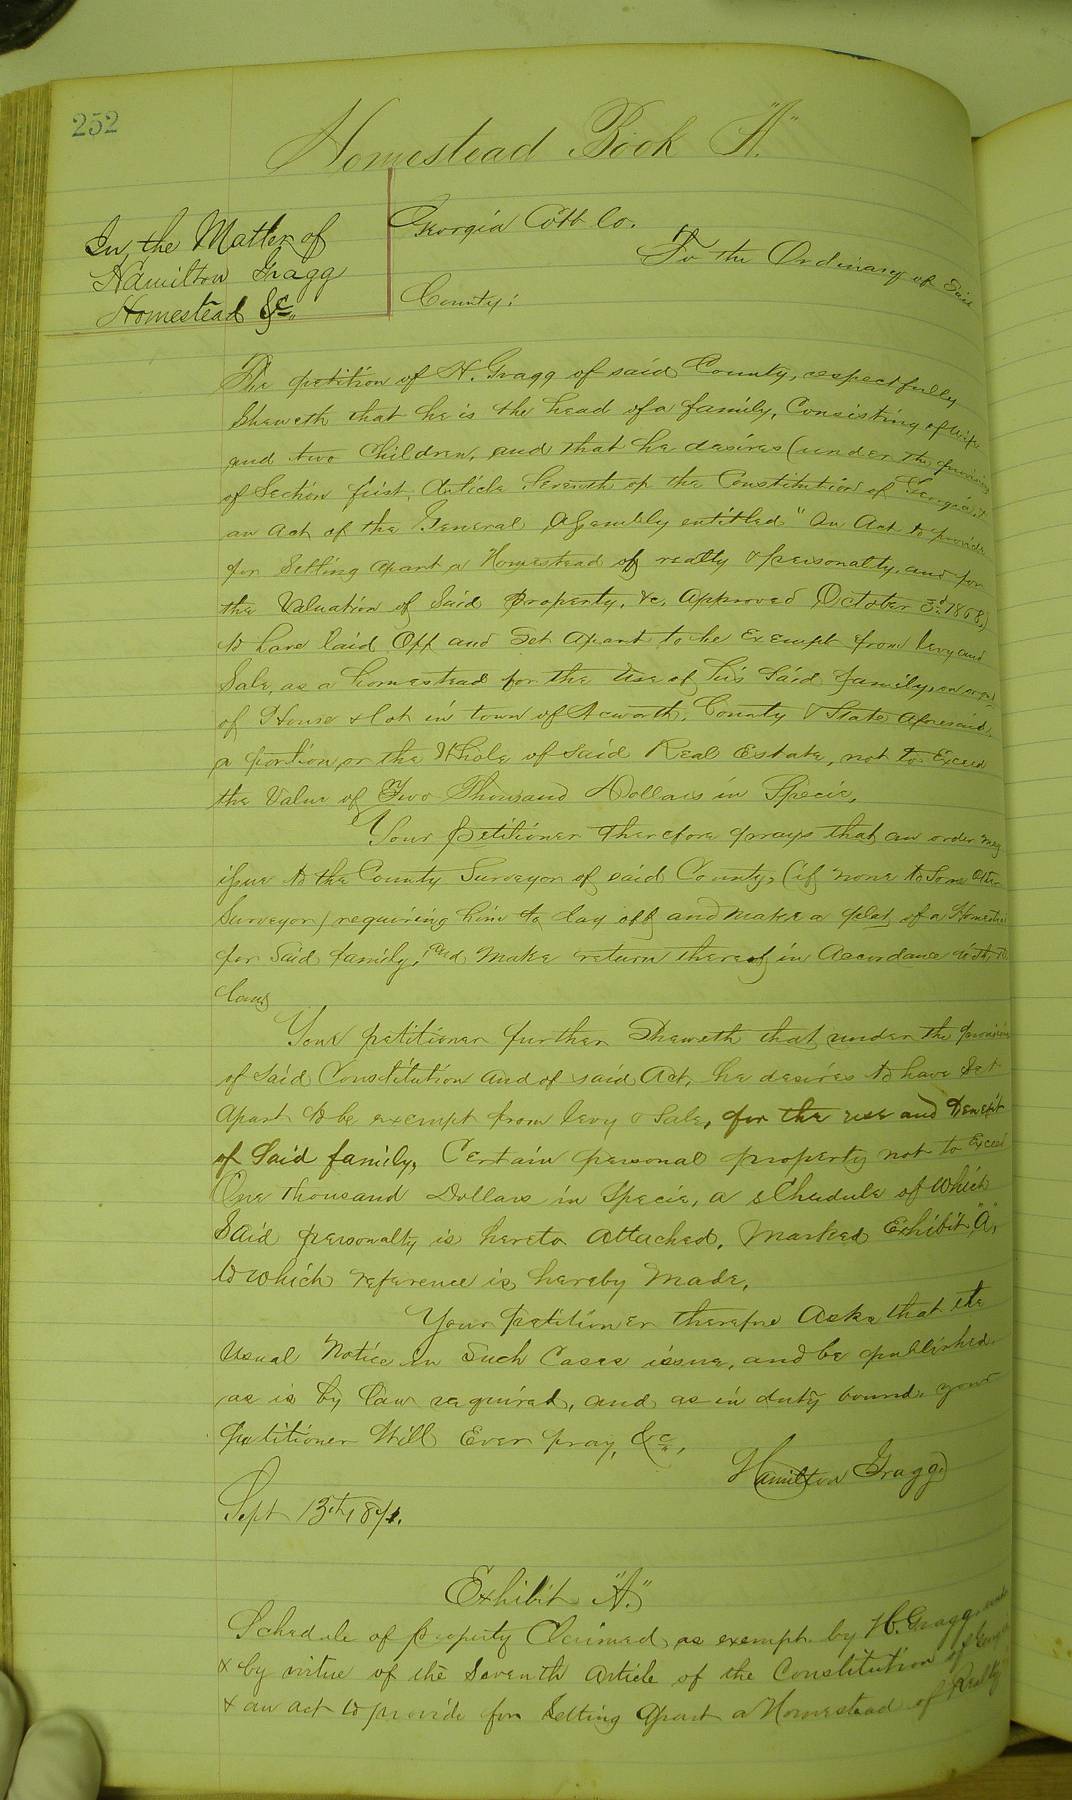 252
Homestead Book "A."
In the Matter of
Hamilton Gragg
Homestead &c.
Georgia Cobb Co.
To the Ordinary of Said
County:
The petition of H. Gragg of said County, respectfully
Sheweth that he is the head of a family, Consisting of wife
and two Children, and that he desires (under the provisions
of Section first, Article Seventh of the Constitution of Georgia, &
an act of the General Assembly entitled "An Act to provide
for Setting apart a Homestead of realty & personalty, and for
the Valuation of Said Property, &c, Approved October 3d 1868,)
to have laid Off and Set Apart to be Exempt from levy and
Sale, as a homestead for the Use of his Said family,
of House & lot in town of Acworth, County & State Aforesaid,
a portion, or the Whole of Said Real Estate, not to Exceed
the Value of Two Thousand Dollars in Specie,
Your Petitioner therefore prays that an order may
issue to the County Surveyor of said County, (if none to Some Other
Surveyor) requiring him to lay off and make a plat of a Homestead
for Said family, and Make return thereof in Accordance with the
law
Your petitioner further Sheweth that under the provisions
of Said Constitution and of said Act, he desires to have Set
Apart to be exempt from levy & Sale, for the use and Benefit
of Said family, Certain personal property not to Exceed
One thousand Dollars in Specie, a schedule of Which
Said personalty is hereto attached, Marked Exhibit "A",
to which reference is hereby Made,
Your Petitioner therefore Asks that the
Usual Notice in Such Cases issue, and be published
as is by law required, and as in duty bound your
Petitioner Will Ever pray, &c,
Hamilton Gragg
Sept 13th, 1871.
Exhibit "A."
Schedule of Property Claimed as exempt by H. Gragg under
& by virtue of the Seventh Article of the Constitution of Georgia
& an act to provide for Setting Apart a Homestead of Realty